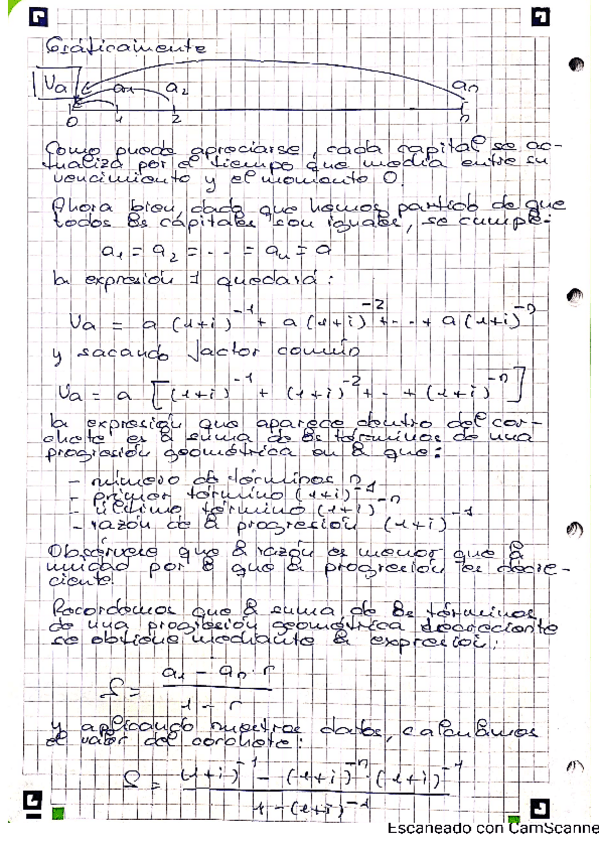 Gráficamente
Va a1 a2 an
0 1 2 n
Como puede apreciarse, cada capital se ac-
tualiza por el tiempo que media entre su
vencimiento y el momento 0.
Ahora bien, dado que hemos partido de que
todos los capitales son iguales, se cumple:
a1 = a2 = ... = an = a
la expresión 1 quedará:
Va = a (1+i)^-1 + a (1+i)^-2 + ... + a (1+i)^-n
y sacando factor común
Va = a [(1+i)^-1 + (1+i)^-2 + ... + (1+i)^-n]
la expresión que aparece dentro del cor-
chete es la suma de los términos de una
progresión geométrica en la que:
- número de términos n
- primer término (1+i)^-1
- último término (1+i)^-n
- razón de la progresión (1+i)^-1
Obsérvese que la razón es menor que la
unidad por lo que la progresión es decre-
ciente.
Recordemos que la suma de los términos
de una progresión geométrica decreciente
se obtiene mediante la expresión:
S = (a1 - an · r) / (1 - r)
y aplicando nuestros datos, calculamos
el valor del corchete:
S = ((1+i)^-1 - (1+i)^-n · (1+i)^-1) / (1 - (1+i)^-1)
Escaneado con CamScanne